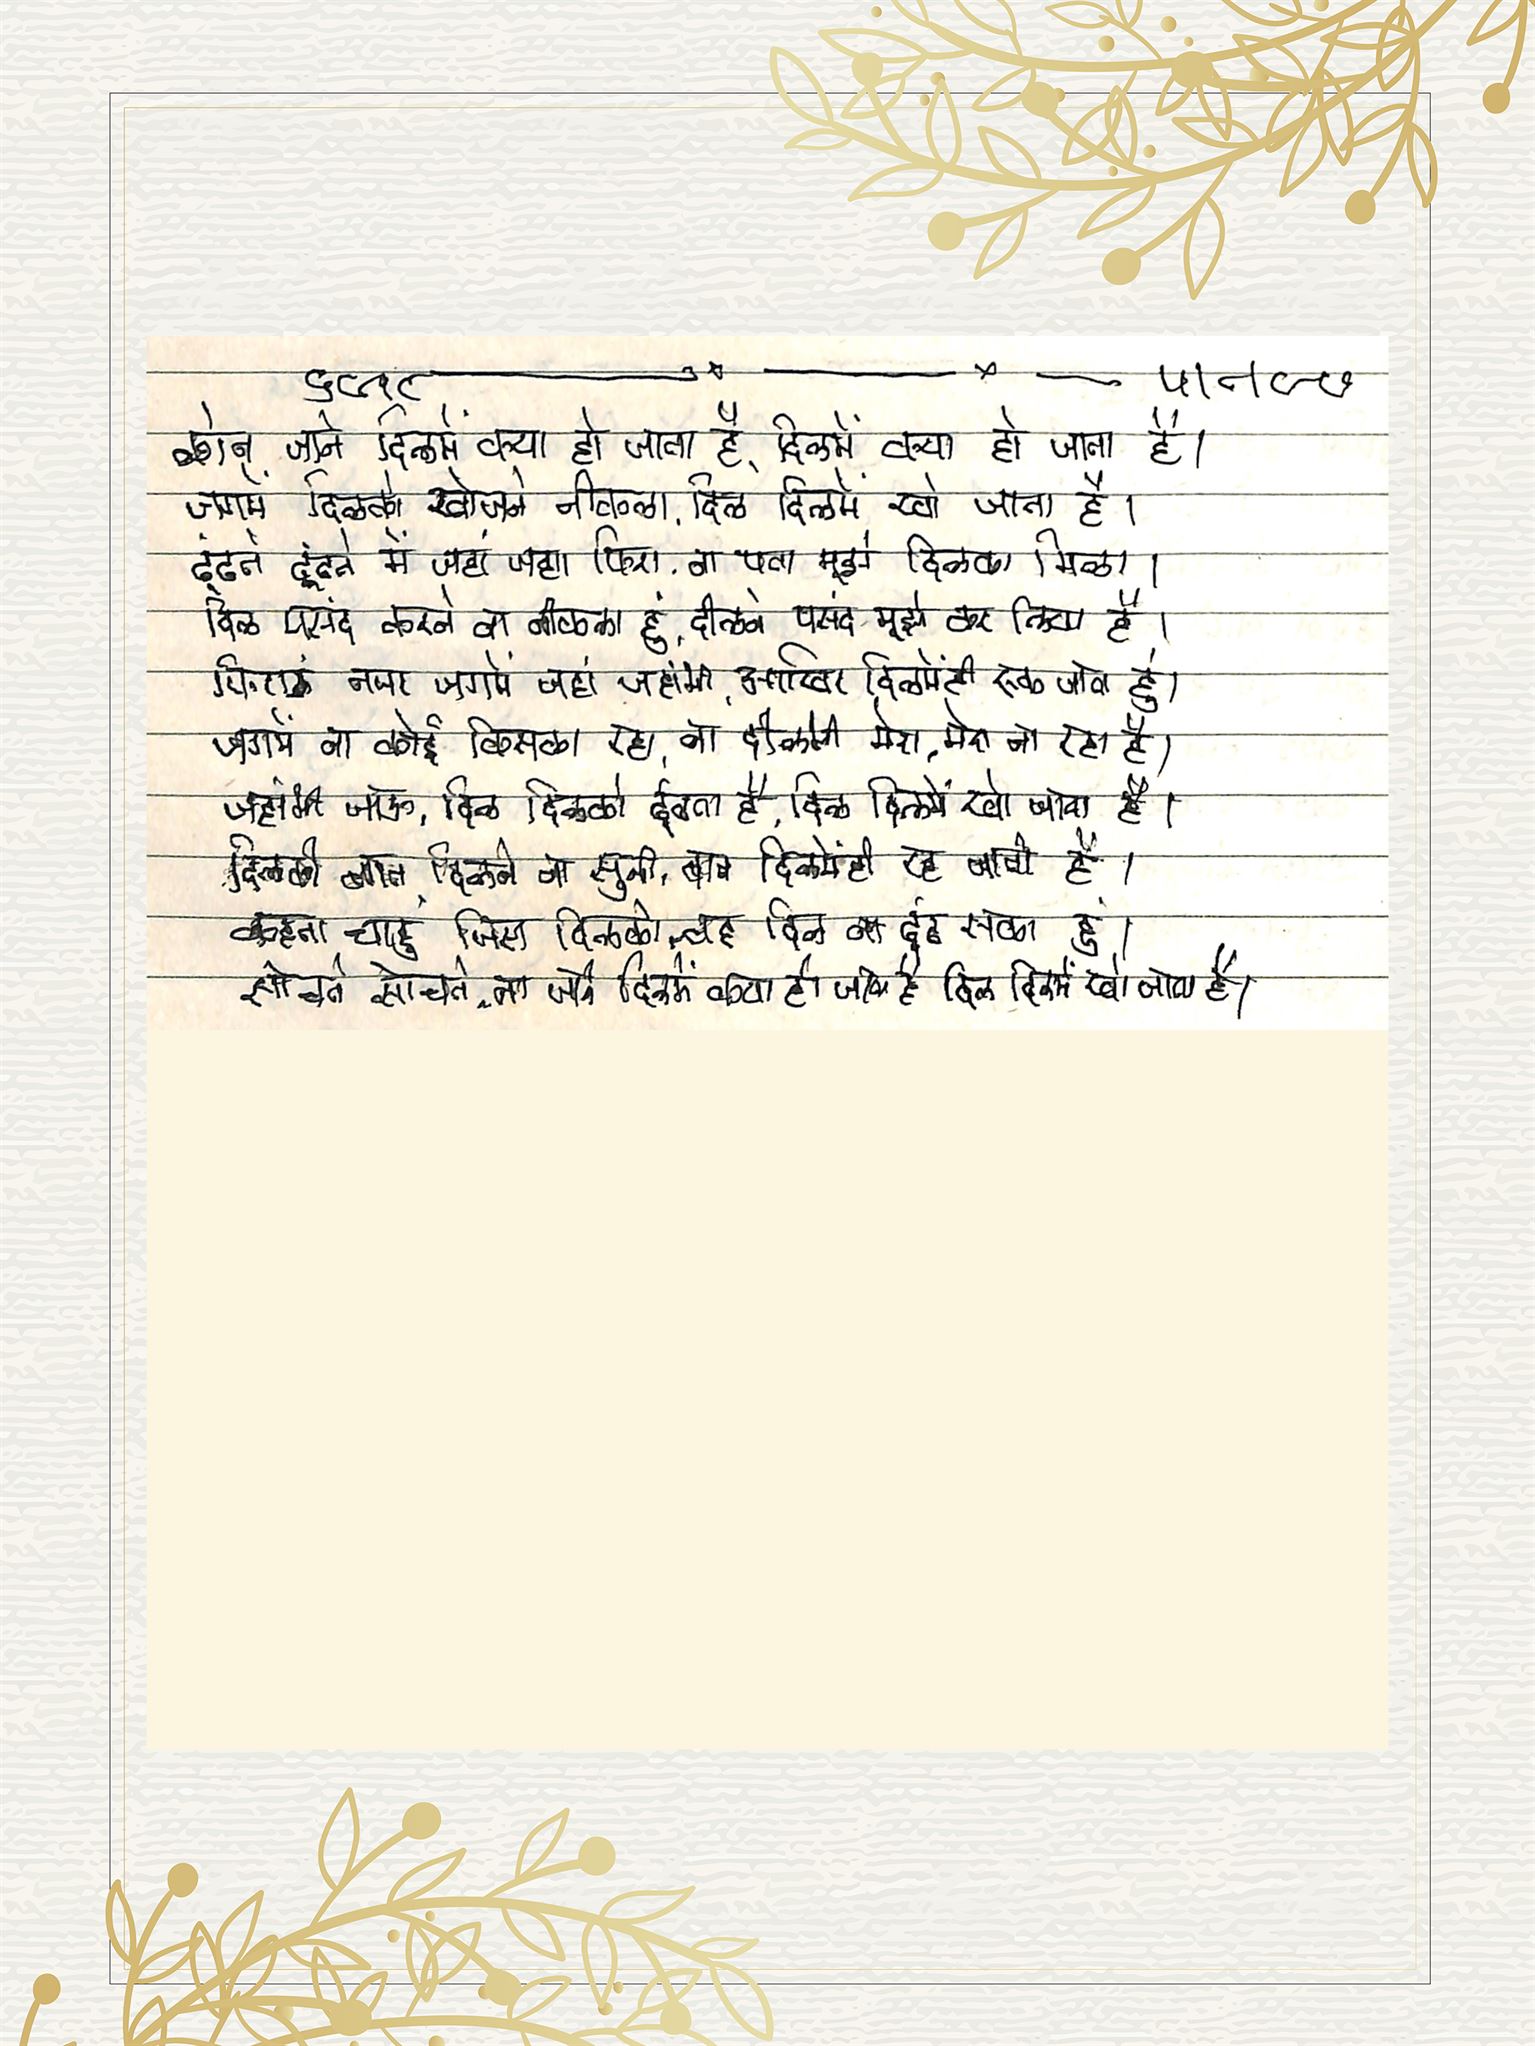 कोन जाने दिलमें क्या हो जाता है, दिलमें क्या हो जाता है।
जगमें दिलको खोजने नीकला, दिल दिलमें खो जाता है।
ढूंढने ढूंढने में जहां जहां फिरा, ना पता मूझे दिलका मिला।
दिल पसंद करने को नीकला हुं, दीलने पसंद मूझे कर लिया है।
नजर जगमें जहां जहांभी, आखिर दिलमेंही रूक जाता हुं।
जगमें ना कोई किसका रहा, ना दीलभी मेरा, मेरा ना रहा है।
जहांभी जाऊं, दिल दिलको ढूंढता है, दिल दिलमें खो जाता है।
दिलकी बात दिलने ना सुनी, बात दिलमेंही रह जाती है।
कहना चाहुं जिस दिलको, वह दिल ना ढूंढ सका हुं।
सोचते सोचते, ना जाने दिलमें क्या हो जाता है दिल दिलमें खो जाता है।